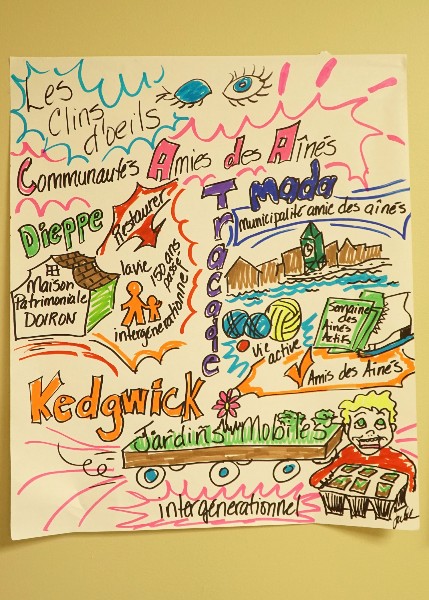 Les
Clins
d'oeils
Communautés Amies des Aînés
Dieppe
Restaurer
Maison
Patrimoniale
DOIRON
la vie
150 ans
passé
intergénérationnel
Tracadie
mada
municipalité amie des aînés
vie
active
Semaine
des
Aînés
Actifs
Amis des Aînés
Kedgwick
Jardins Mobiles
intergénérationnel